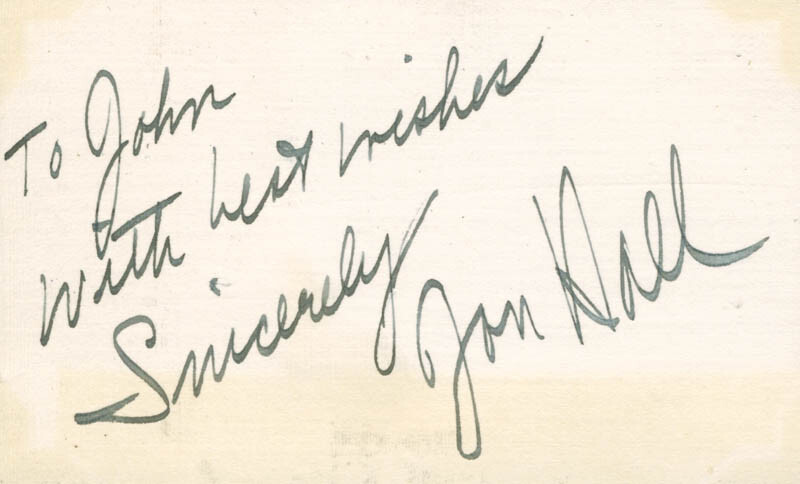 To John
with best wishes
Sincerely
Jon Hall